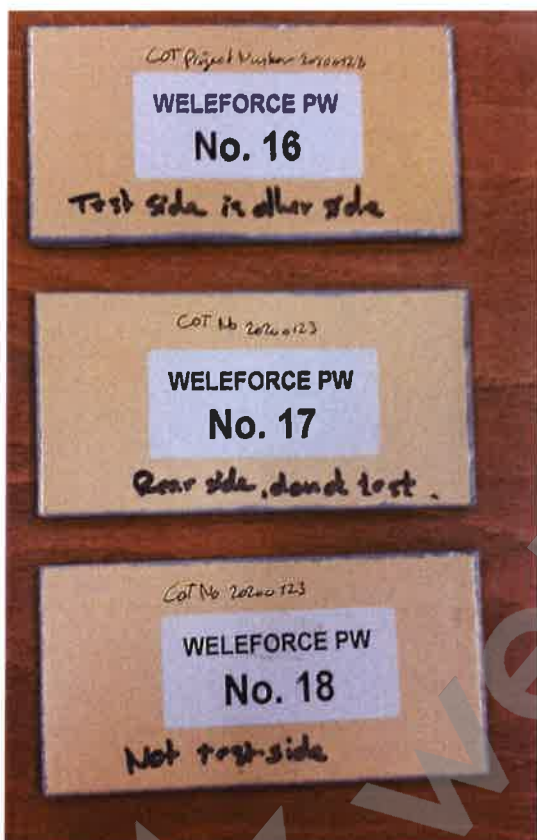 COT Project Number 20200123
WELEFORCE PW
No. 16
Test side is other side
COT No 20200123
WELEFORCE PW
No. 17
Rear side, donot test.
COT No 20200123
WELEFORCE PW
No. 18
Not test side